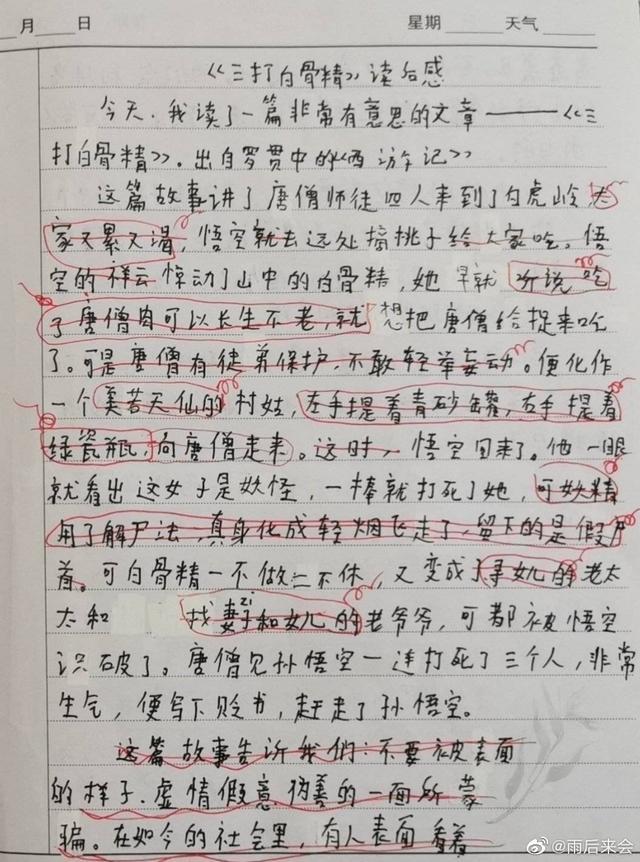 月 日 星期 天气
《三打白骨精》读后感
今天，我读了一篇非常有意思的文章——《三
打白骨精》。出自罗贯中的《西游记》
这篇故事讲了唐僧师徒四人来到了白虎岭大
家又累又渴，悟空就去远处摘桃子给大家吃。悟
空的祥云惊动了山中的白骨精，她早就听说吃
了唐僧肉可以长生不老，就想把唐僧给捉来吃
了。可是唐僧有徒弟保护，不敢轻举妄动。便化作
一个美若天仙的村姑，左手提着青砂罐，右手提着
绿瓷瓶，向唐僧走来。这时，悟空回来了。他一眼
就看出这女子是妖怪，一棒就打死了她，可妖精
用了解尸法，真身化成轻烟飞走了，留下的是假尸
首。可白骨精一不做二不休，又变成了寻女儿的老太
太和 找妻子和女儿的老爷爷，可都被悟空
识破了。唐僧见孙悟空一连打死了三个人，非常
生气，便写下贬书，赶走了孙悟空。
这篇故事告诉我们：不要被表面
的样子、虚情假意伪善的一面所蒙
骗。在如今的社会里，有人表面看着
@雨后来会